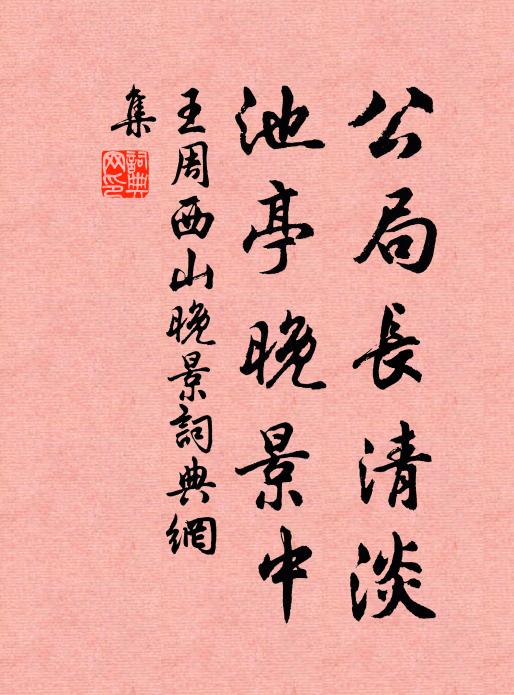 公局長清淡
池亭晚景中
王周西山晚景詞典網
集
詞典網印